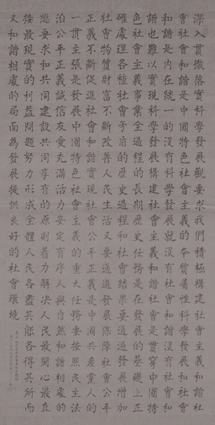 深入貫徹落實科學發展觀要求我們積極構建社會主義和諧社
會社會和諧是中國特色社會主義的本質屬性科學發展和社會
和諧是內在統一的沒有科學發展就沒有社會和諧沒有社會和
諧也難以實現科學發展構建社會主義和諧社會是貫穿中國特
色社會主義事業全過程的長期歷史任務是在發展的基礎上正
確處理各種社會矛盾的歷史過程和社會結果要通過發展增加
社會物質財富不斷改善人民生活又要通過發展保障社會公平
正義不斷促進社會和諧實現社會公平正義是中國共產黨人的
一貫主張是發展中國特色社會主義的重大任務要按照民主法
治公平正義誠信友愛充滿活力安定有序人與自然和諧相處的
總要求和共同建設共同享有的原則着力解決人民最關心最直
接最現實的利益問題努力形成全體人民各盡其能各得其所而
又和諧相處的局面為發展提供良好的社會環境